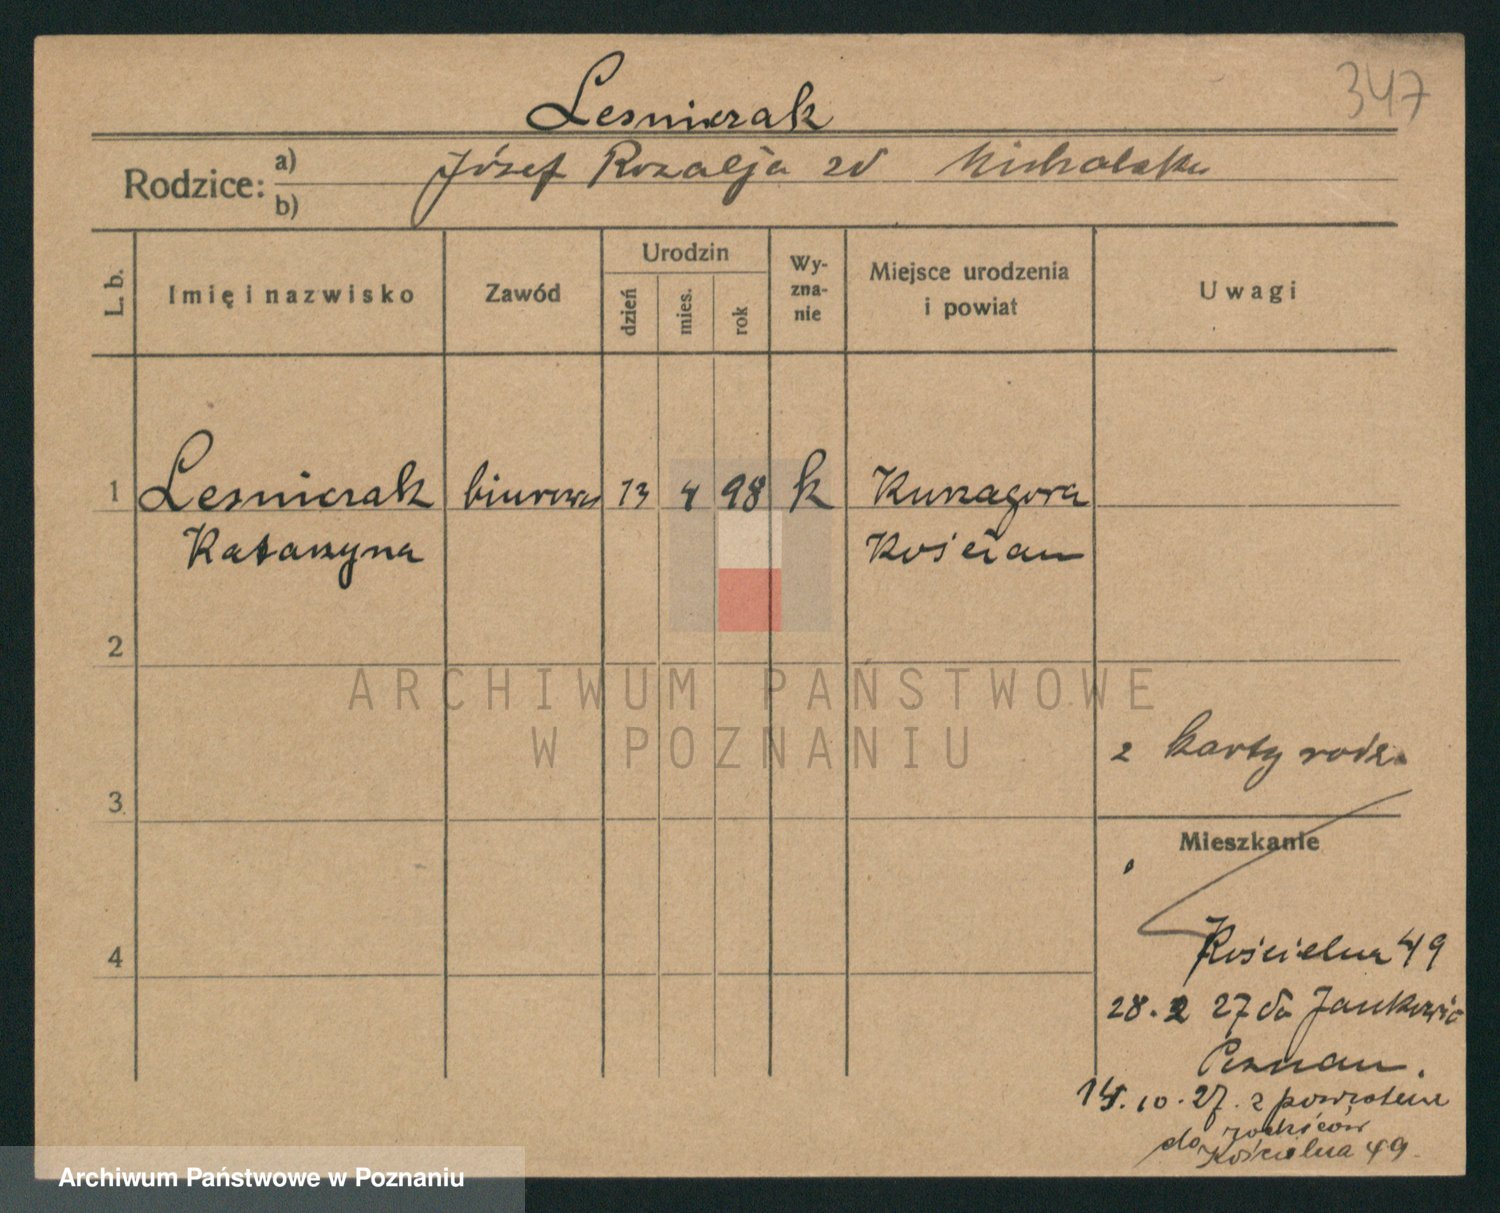 347
Lesnierak
Rodzice: a) b) Józef Rozalja zd
L. b. Imię i nazwisko Zawód Urodzin dzień mies. rok Wy-zna-nie Miejsce urodzenia i powiat Uwagi
1 Lesnierak biurowa 13 4 98 k Kurzagora
Katarzyna Kościan
2
ARCHIWUM PAŃSTWOWE
W POZNANIU
z karty rodz.
3
Mieszkanie
4
Kościelna 49
28.2 27 do Jankowic
Poznan.
10.27. z powrotem
do rodziców
Kościelna 49.
Archiwum Państwowe w Poznaniu